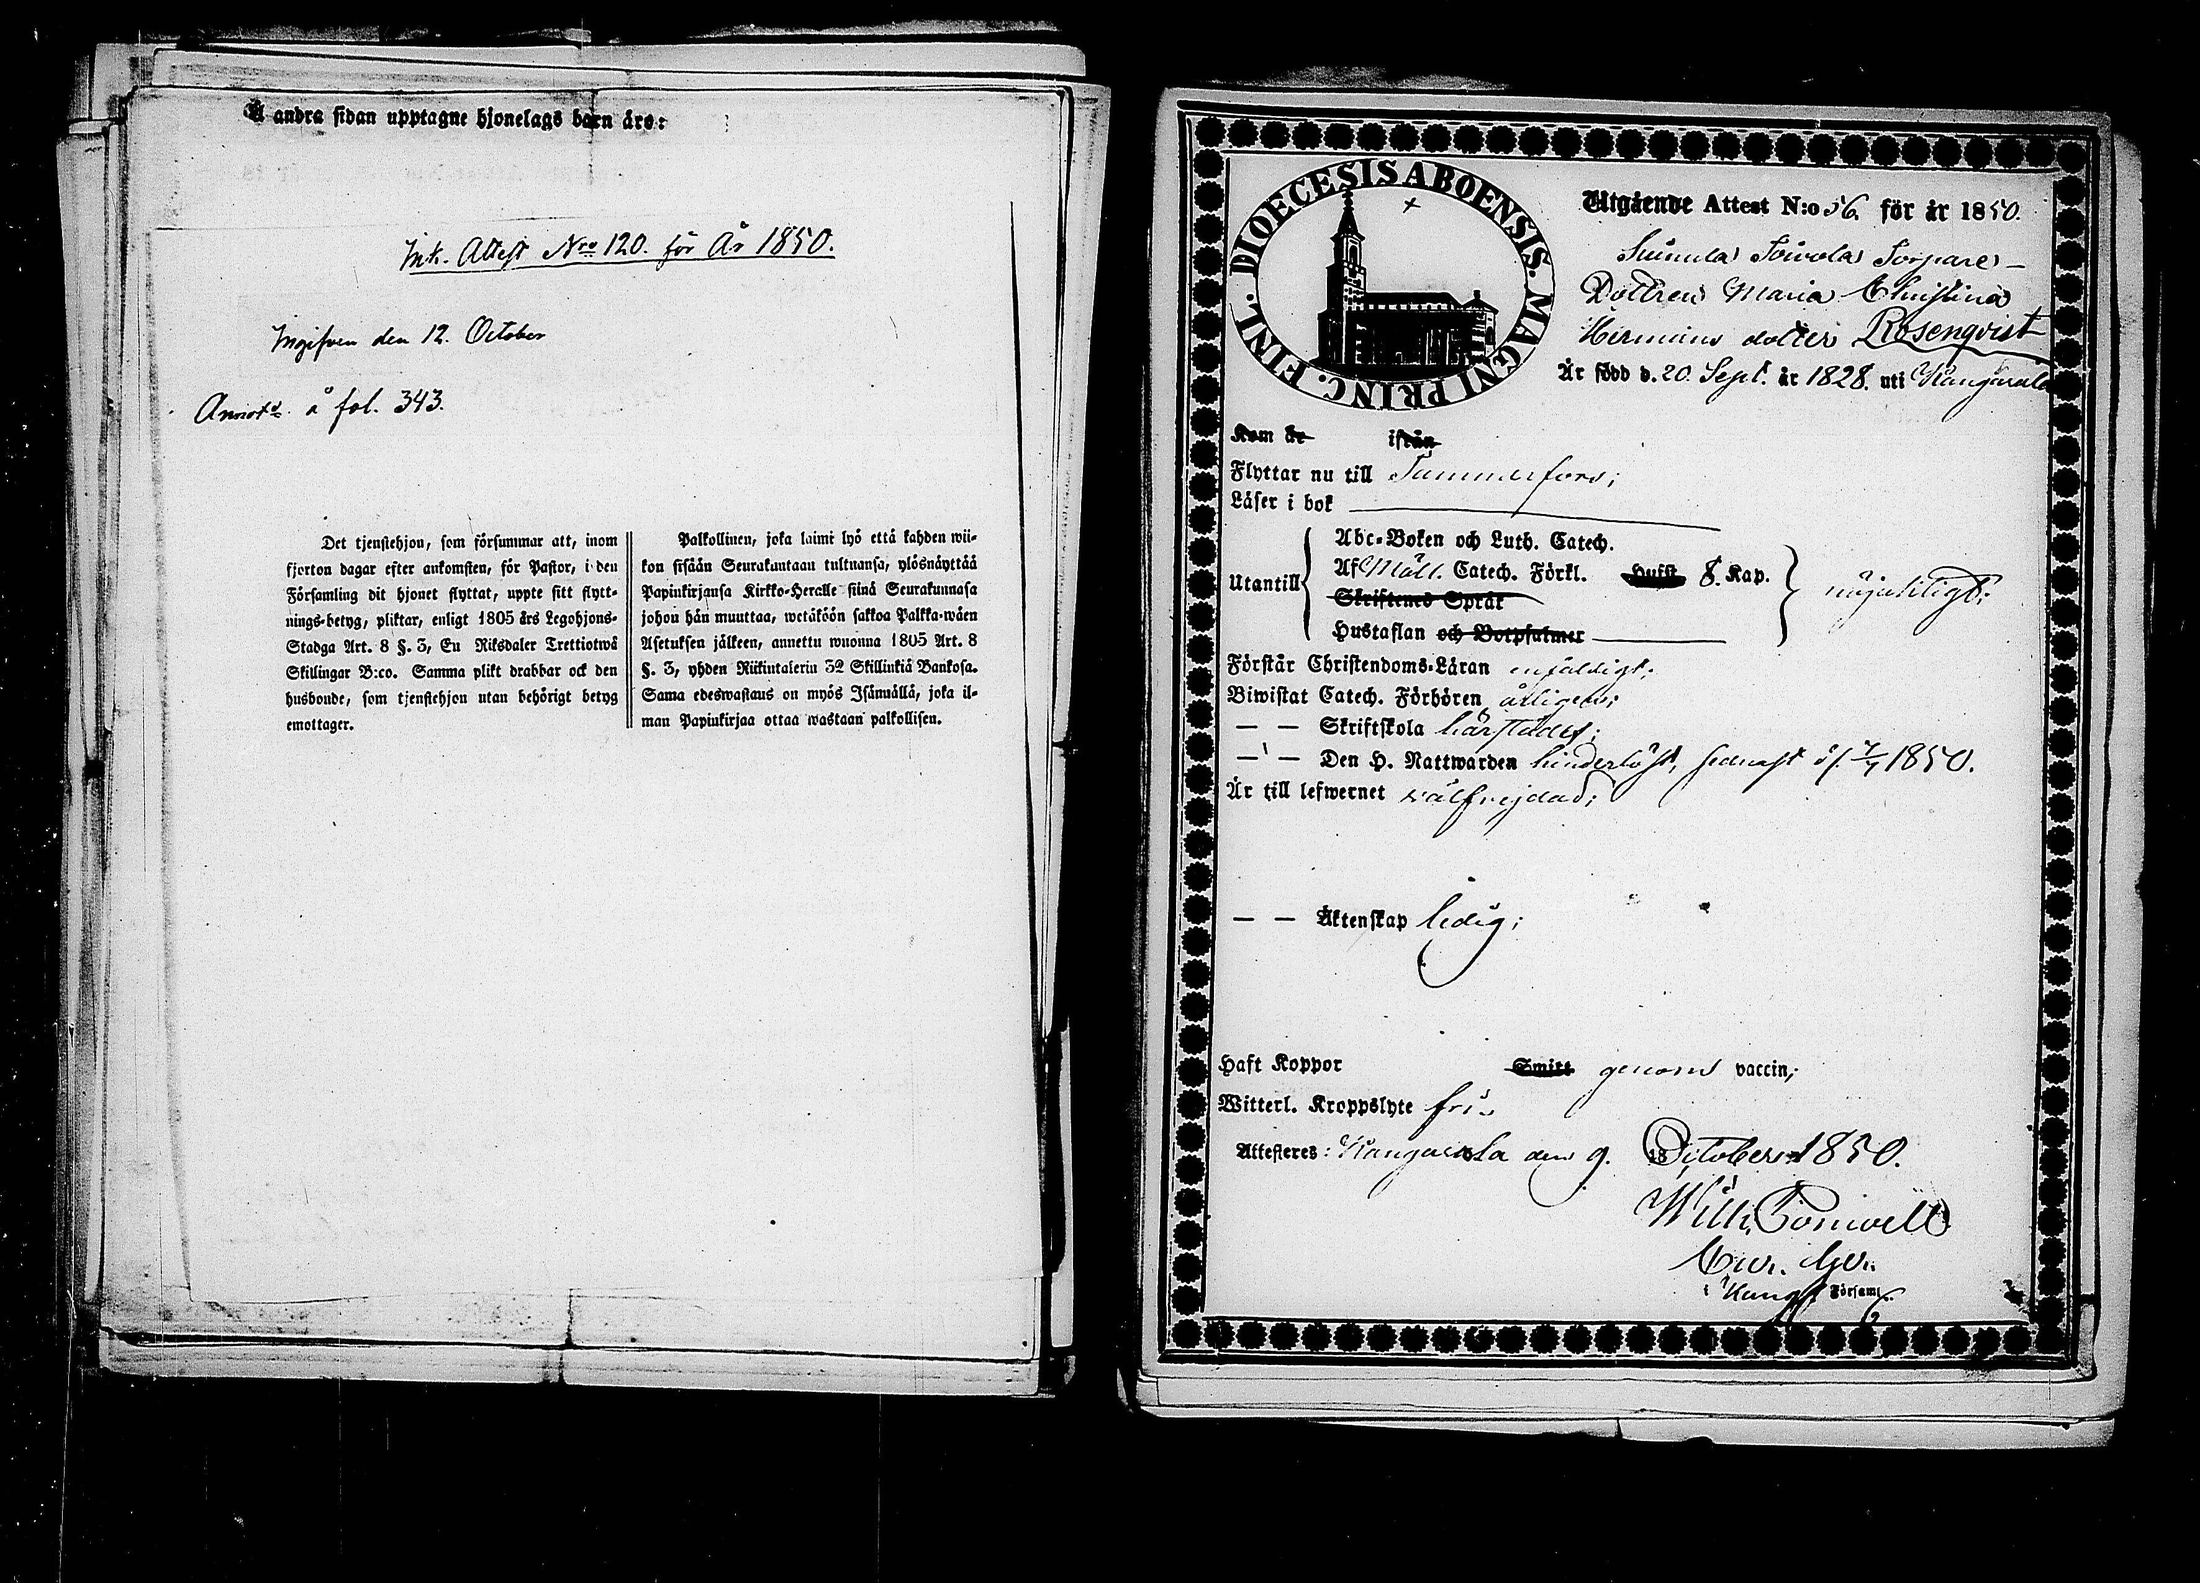 Å andra sidan upptagne hjonelags barn äro:
Ink. Attest Nro 120. för År 1850.
Ingifven den 12. October
Annot. å fol. 343.
Det tjenstehjon, som försummar att, inom
fjorton dagar efter ankomsten, för Pastor, i den
Församling dit hjonet flyttat, uppte sitt flytt-
nings-betyg, pliktar, enligt 1805 års Legohjons-
Stadga Art. 8 §. 3, En Riksdaler Trettiotwå
Skillingar B:co. Samma plikt drabbar ock den
husbonde, som tjenstehjon utan behörigt betyg
emottager.
Palkollinen, joka laimi lyö että kahden wii-
kon sisään Seurakuntaan tultuansa, ylösnäyttää
Papinkirjansa Kirkko-Heralle siinä Seurakunnasa
johon hän muuttaa, wetäköön sakkoa Palkka-wäen
Asetuksen jälkeen, annettu wuonna 1805 Art. 8
§. 3, yhden Riikintalerin 32 Skillinkiä Bankosa.
Sama edeswastaus on myös Isännällä, joka il-
man Papinkirjaa ottaa wastaan palkollisen.
DIOECESIS ABOENSIS. MAGNI PRINC. FINL.
Utgående Attest N:o 56. för år 1850.
Toivola Torpare-
Dottren Maria Christina
Hermans dotter Rosenqvist
Är född d. 20. Sept. år 1828. uti Kangasala
Kom år ifrån
Flyttar nu till Tammerfors;
Läser i bok
Utantill
Abc-Boken och Luth. Catech.
Af Möll. Catech. Förkl. Hufst 8. Kap.
Skriftenes Språk
Hustaflan och Botpsalmer
nöjaktigt;
Förstår Christendoms-Läran enfaldigt;
Biwistat Catech. Förhören årligen;
— — Skriftskola härstädes;
— — Den H. Nattwarden hinderlöst, sednast d. 7/7 1850.
Är till lefwernet välfrejdad;
— — Äktenskap ledig;
Haft Koppor Smitt genom vaccin;
Witterl. Kroppslyte fri.
Attesteres: Kangasala den 9. October 1850.
Wilh.
i Kang. Församl.